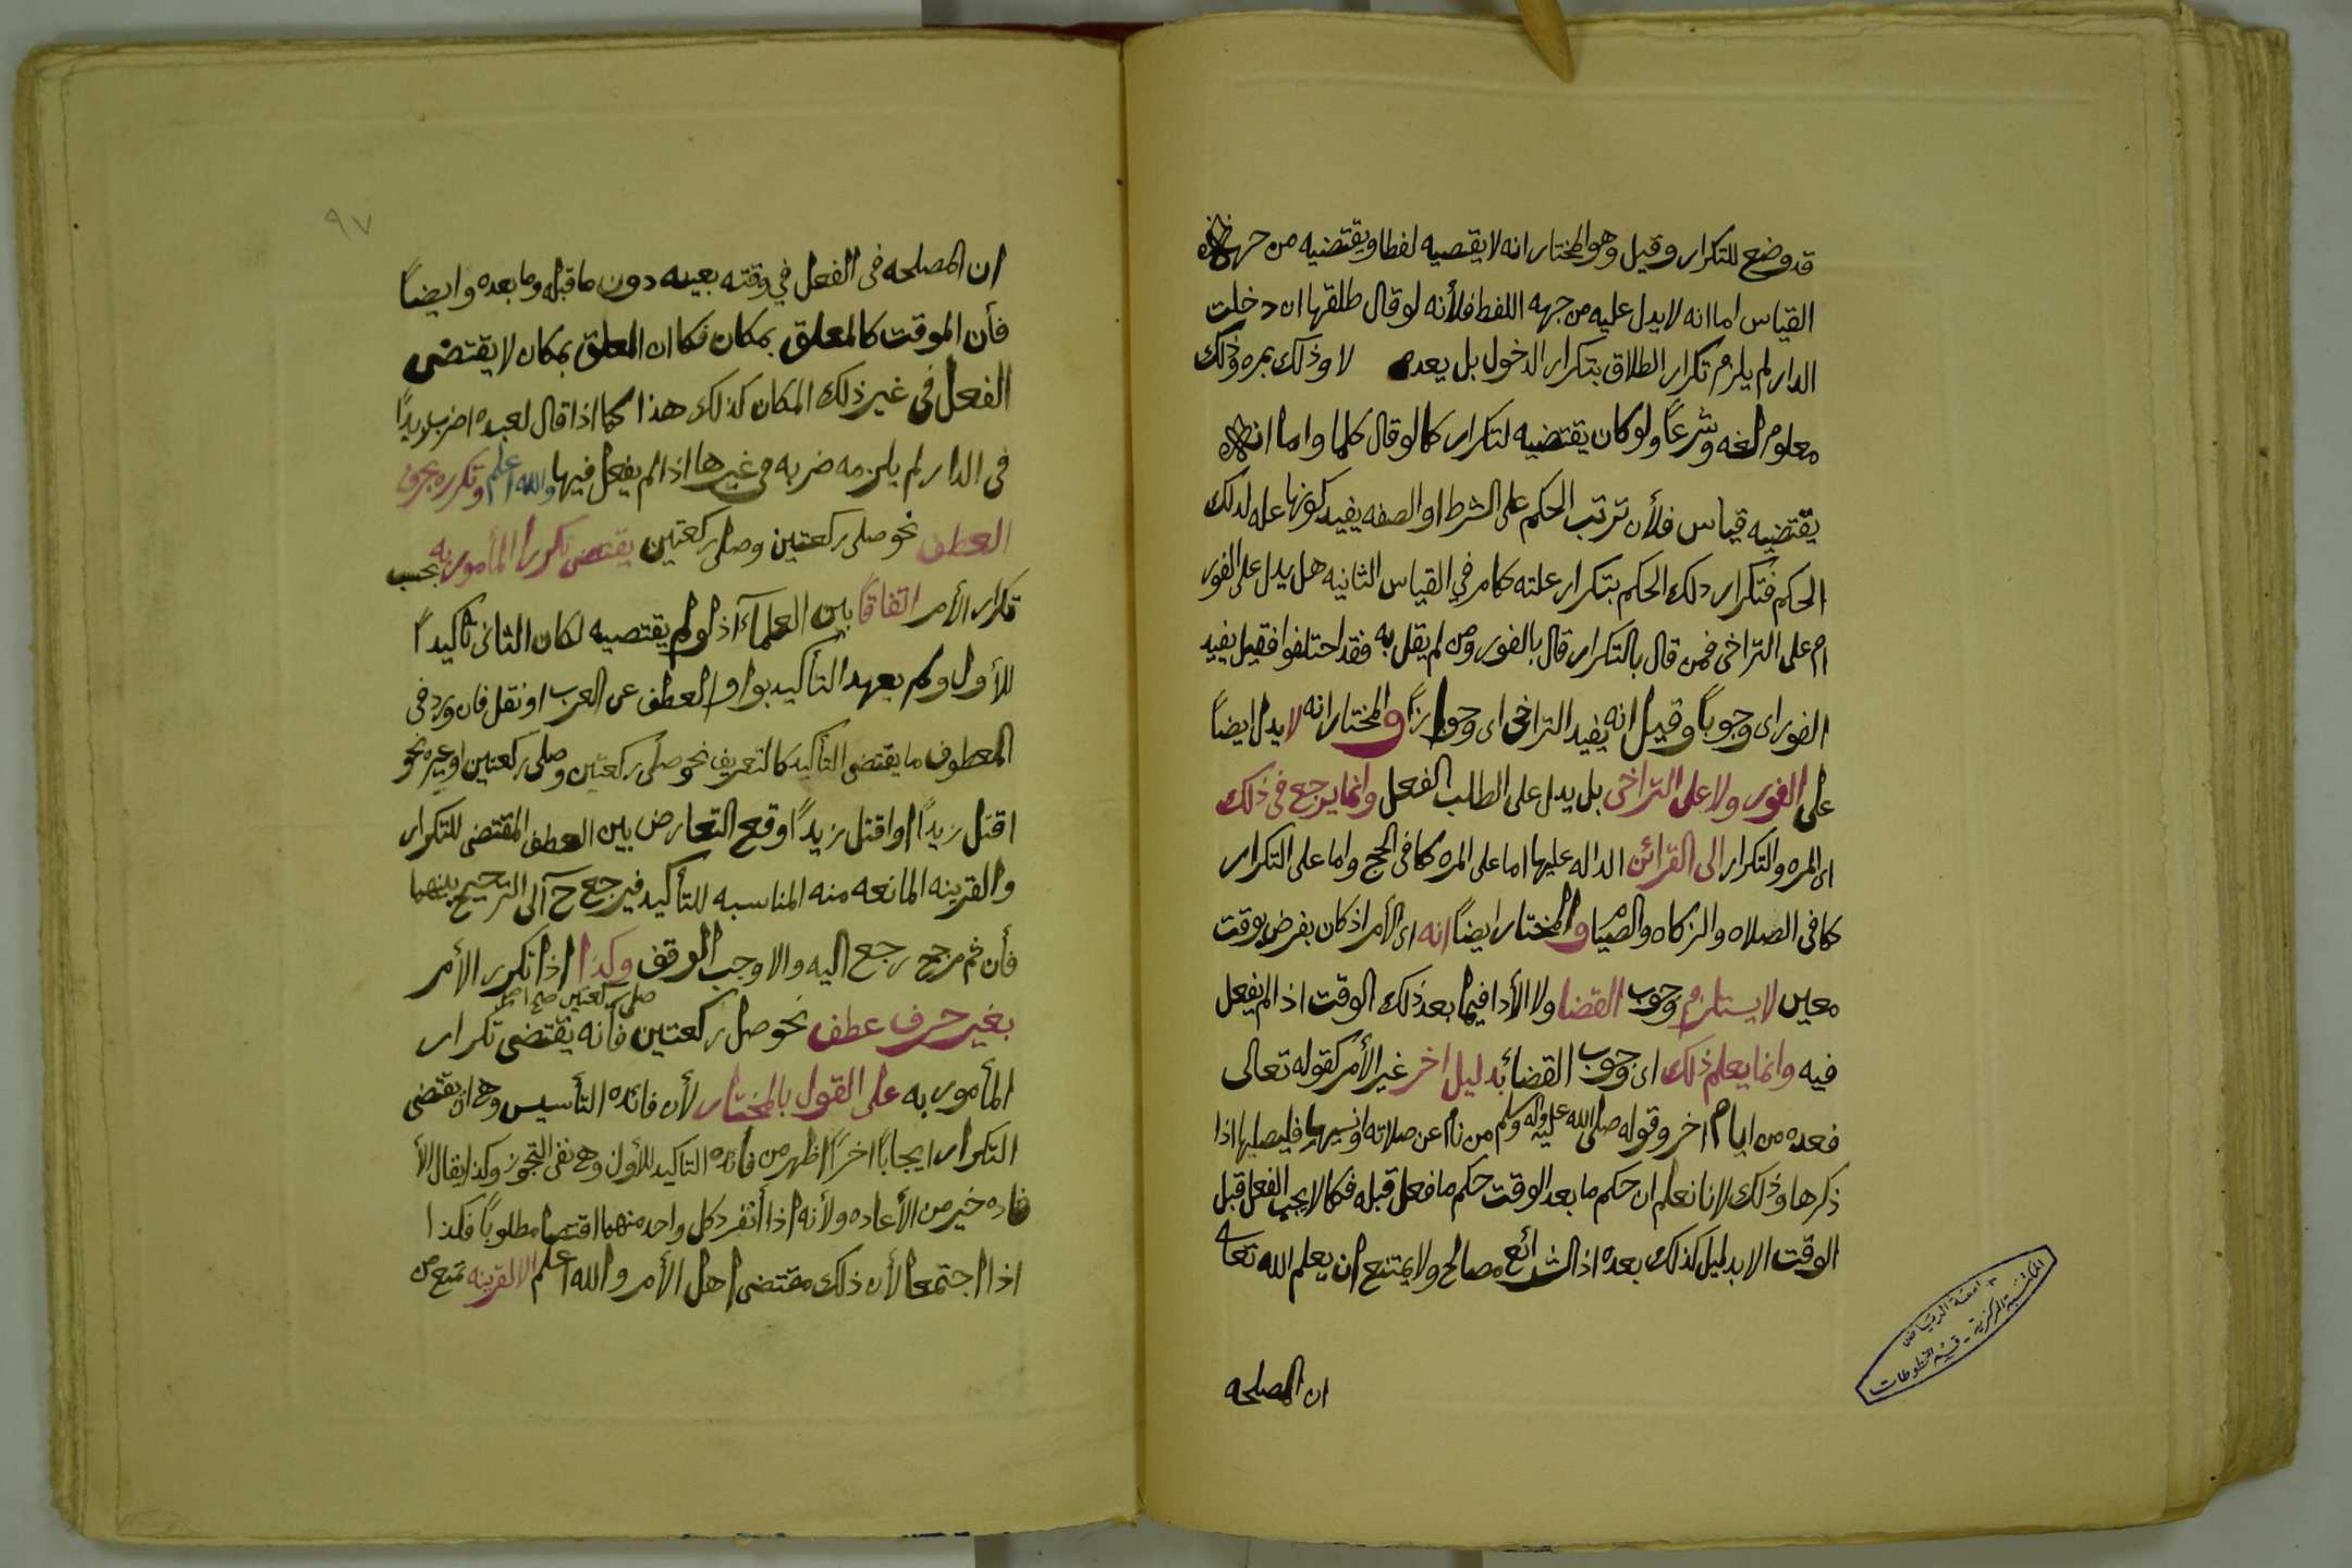 قد وضع للتكرار وقيل وهو المختار انه لا يقتضيه لفظا ويقتضيه من جهه
القياس اما انه لا يدل عليه من جهه اللفظ فلأنه لو قال طلقها ان دخلت
الدار لم يلزم تكرار الطلاق بتكرار الدخول بل يعد لا وذلك بمره وذلك
معلوم لغه وشرعاً ولو كان يقتضيه لتكرار كما لو قال كلما واما انه
يقتضيه قياس فلأن ترتب الحكم على الشرط او الصفه يفيد كونها عله لذلك
الحكم فتكرار ذلك الحكم بتكرار علته كما مر في القياس الثانيه هل يدل على الفور
ام على التراخى فمن قال بالتكرار قال بالفور ومن لم يقل به فقد اختلفوا فقيل يفيد
الفور اى وجوباً وقيل انه يفيد التراخى اى وجوازاً والمختار انه لا يدل ايضاً
على الفور ولا على التراخى بل يدل على الطلب الفعل وانما يرجع فى ذلك
اى المره والتكرار الى القرائن الداله عليها اما على المره كما فى الحج واما على التكرار
كما فى الصلاه والزكاه والصيام والمختار ايضاً انه اى الأمر اذ كان بفرض بوقت
معين لا يستلزم وجوب القضا ولا الأدا فيما بعد ذلك الوقت اذا لم يفعل
فيه وانما يعلم ذلك اى وجوب القضاء بدليل اخر غير الأمر كقوله تعالى
فعده من ايام اخر وقوله صلى الله عليه واله وسلم من نام عن صلاته او نسيها فليصلها اذا
ذكرها وذلك لانا نعلم ان حكم ما بعد الوقت حكم ما فعل قبله فكما لا يجب الفعل قبل
الوقت الا بدليل كذلك بعده اذ الشرائع مصالح ولا يمتنع ان يعلم الله تعا
ان المصلحه
جامعة الرياض
المكتبة المركزية - قسم المخطوطات
٩٧
ان المصلحه فى الفعل في وقته بعينه دون ما قبله وما بعده وايضاً
فأن الموقت كالمعلق بمكان فكما ان المعلق بمكان لا يقتضى
الفعل فى غير ذلك المكان كذلك هذا كما اذا قال لعبده اضرب زيداً
فى الدار لم يلزمه ضربه فى غيرها اذا لم يفعل فيها والله اعلم وتكرره بحرف
العطف نحو صلى ركعتين وصلى ركعتين يقتضى تكرار المأمور به بحسب
تكرار الأمر اتفاقاً بين العلماء اذ لو لم يقتضيه لكان الثانى تأكيداً
للأول ولم يعهد التأكيد بواو العطف عن العرب او نقل فان ورد فى
المعطوف ما يقتضى التأكيد كالتعريف نحو صلى ركعتين وصلى ركعتين او غيره نحو
اقتل زيداً او اقتل زيداً وقع التعارض بين العطف المقتضى للتكرار
والقرينه المانعه منه المناسبه للتأكيد فيرجع ح الى الترجيح بينهما
فأن ثم مرجح رجع اليه والا وجب الوقف وكذا اذا تكرر الأمر
صلى ركعتين صح اصل
بغير حرف عطف نحو صل ركعتين فأنه يقتضى تكرار
المأمور به على القول بالمختار لأن فائده التأسيس وهى ان يقتضى
التكرار ايجاباً اخراً اظهر من فائده التاكيد للأول وهى نفى التجوز وكذا يقال الأ
فاده خير من الأعاده ولأنه اذا أنفرد كل واحد منهما اقتضا مطلوباً فكذا
اذا اجتمعا لأن ذلك مقتضى اهل الأمر والله اعلم الا لقرينه تمنع من